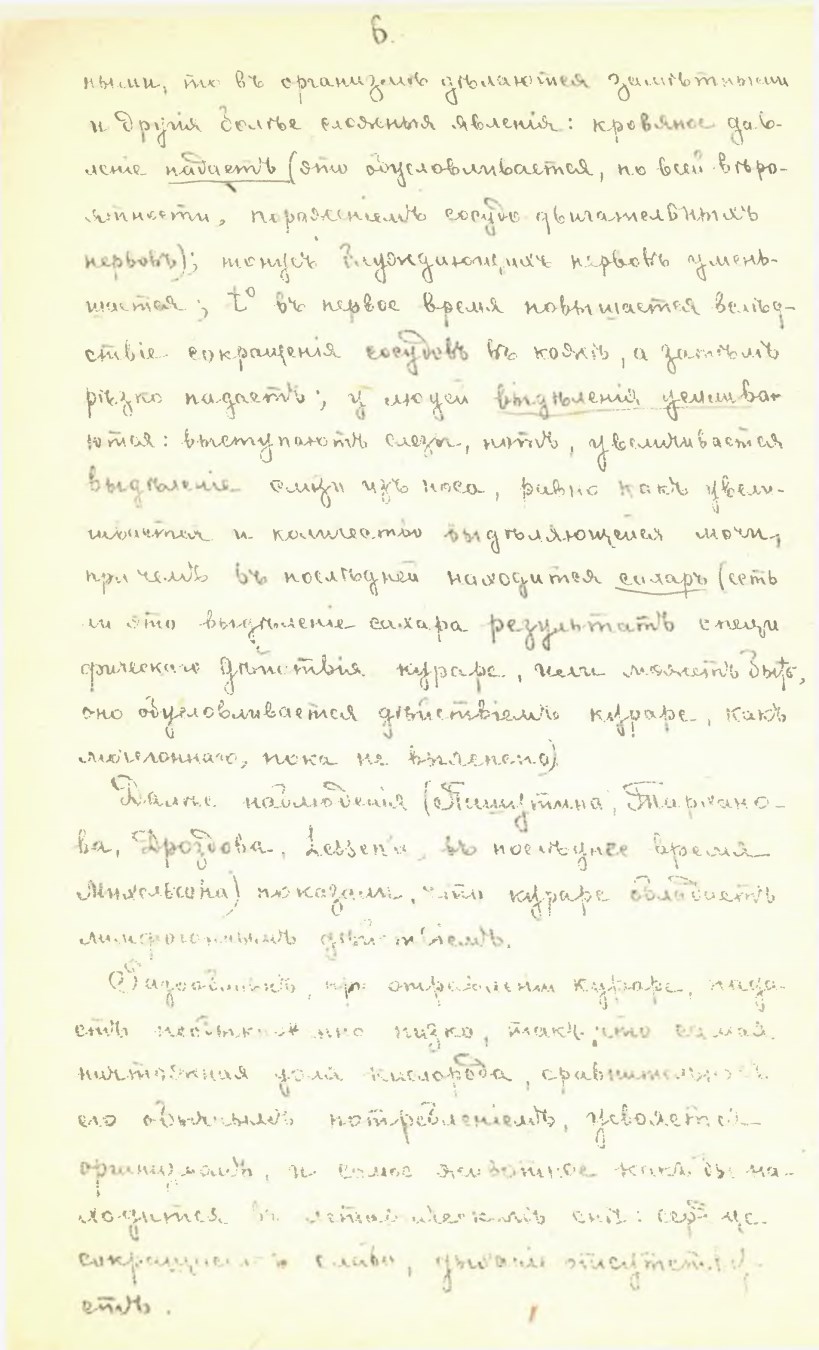 6.
ными, то въ организмѣ дѣлаются замѣтными
и другія болѣе сложныя явленія: кровяное дав-
леніе падаетъ (это обусловливается, по всей вѣро-
ятности, пораженіемъ сосудо двигательныхъ
нервовъ); тонусъ блуждающихъ нервовъ умень-
шается; t° въ первое время повышается вслѣд-
ствіе сокращенія сосудовъ въ кожѣ, а затѣмъ
рѣзко падаетъ; у людей выдѣленія усилива-
ются: выступаютъ слезы, потъ, увеличивается
выдѣленіе слизи изъ носа, равно какъ увели-
чивается и количество выдѣляющейся мочи,
при чемъ въ послѣдней находится сахаръ (есть
ли это выдѣленіе сахара результатъ специ
фическаго дѣйствія кураре, или можетъ быть,
оно обусловливается дѣйствіемъ кураре, какъ
мочегоннаго, пока не выяснено)
Далѣе наблюденія (Пашутина, Тархано-
ва, Дроздова, въ послѣднее время
Михельсона) показали, что кураре обладаетъ
лимфогоннымъ дѣйствіемъ.
Газообмѣнъ, при отравленіи кураре, пада-
етъ необыкновенно низко, такъ что самая
ничтожная доля кислорода, сравнительно съ
его обычнымъ потребленіемъ, усвояется
организмомъ, и самое животное какъ бы на-
ходится въ летаргическомъ снѣ: сердце
сокращается слабо, дыханіе отсутству-
етъ.